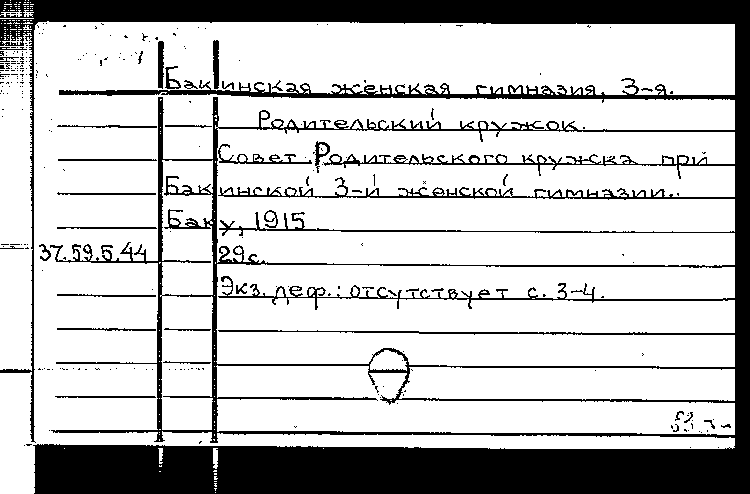 Бакинская женская гимназия, 3-я.
Родительский кружок.
Совет Родительского кружка при
Бакинской 3-й женской гимназии..
Баку, 1915
37.59.5.44 29с.
Экз. деф.: отсутствует с. 3-4.